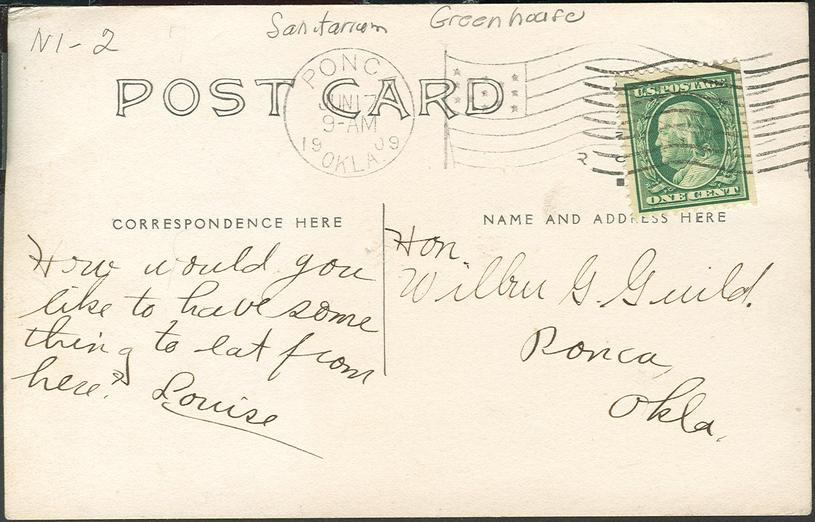 N1-2
Sanitarium Greenhouse
POST CARD
PONCA
JUN 17
9-AM
1909
OKLA.
U.S. POSTAGE
ONE CENT
CORRESPONDENCE HERE
How would you
like to have some
thing to eat from
here? Louise
NAME AND ADDRESS HERE
Hon.
Wilbur G. Guild.
Ponca,
Okla.